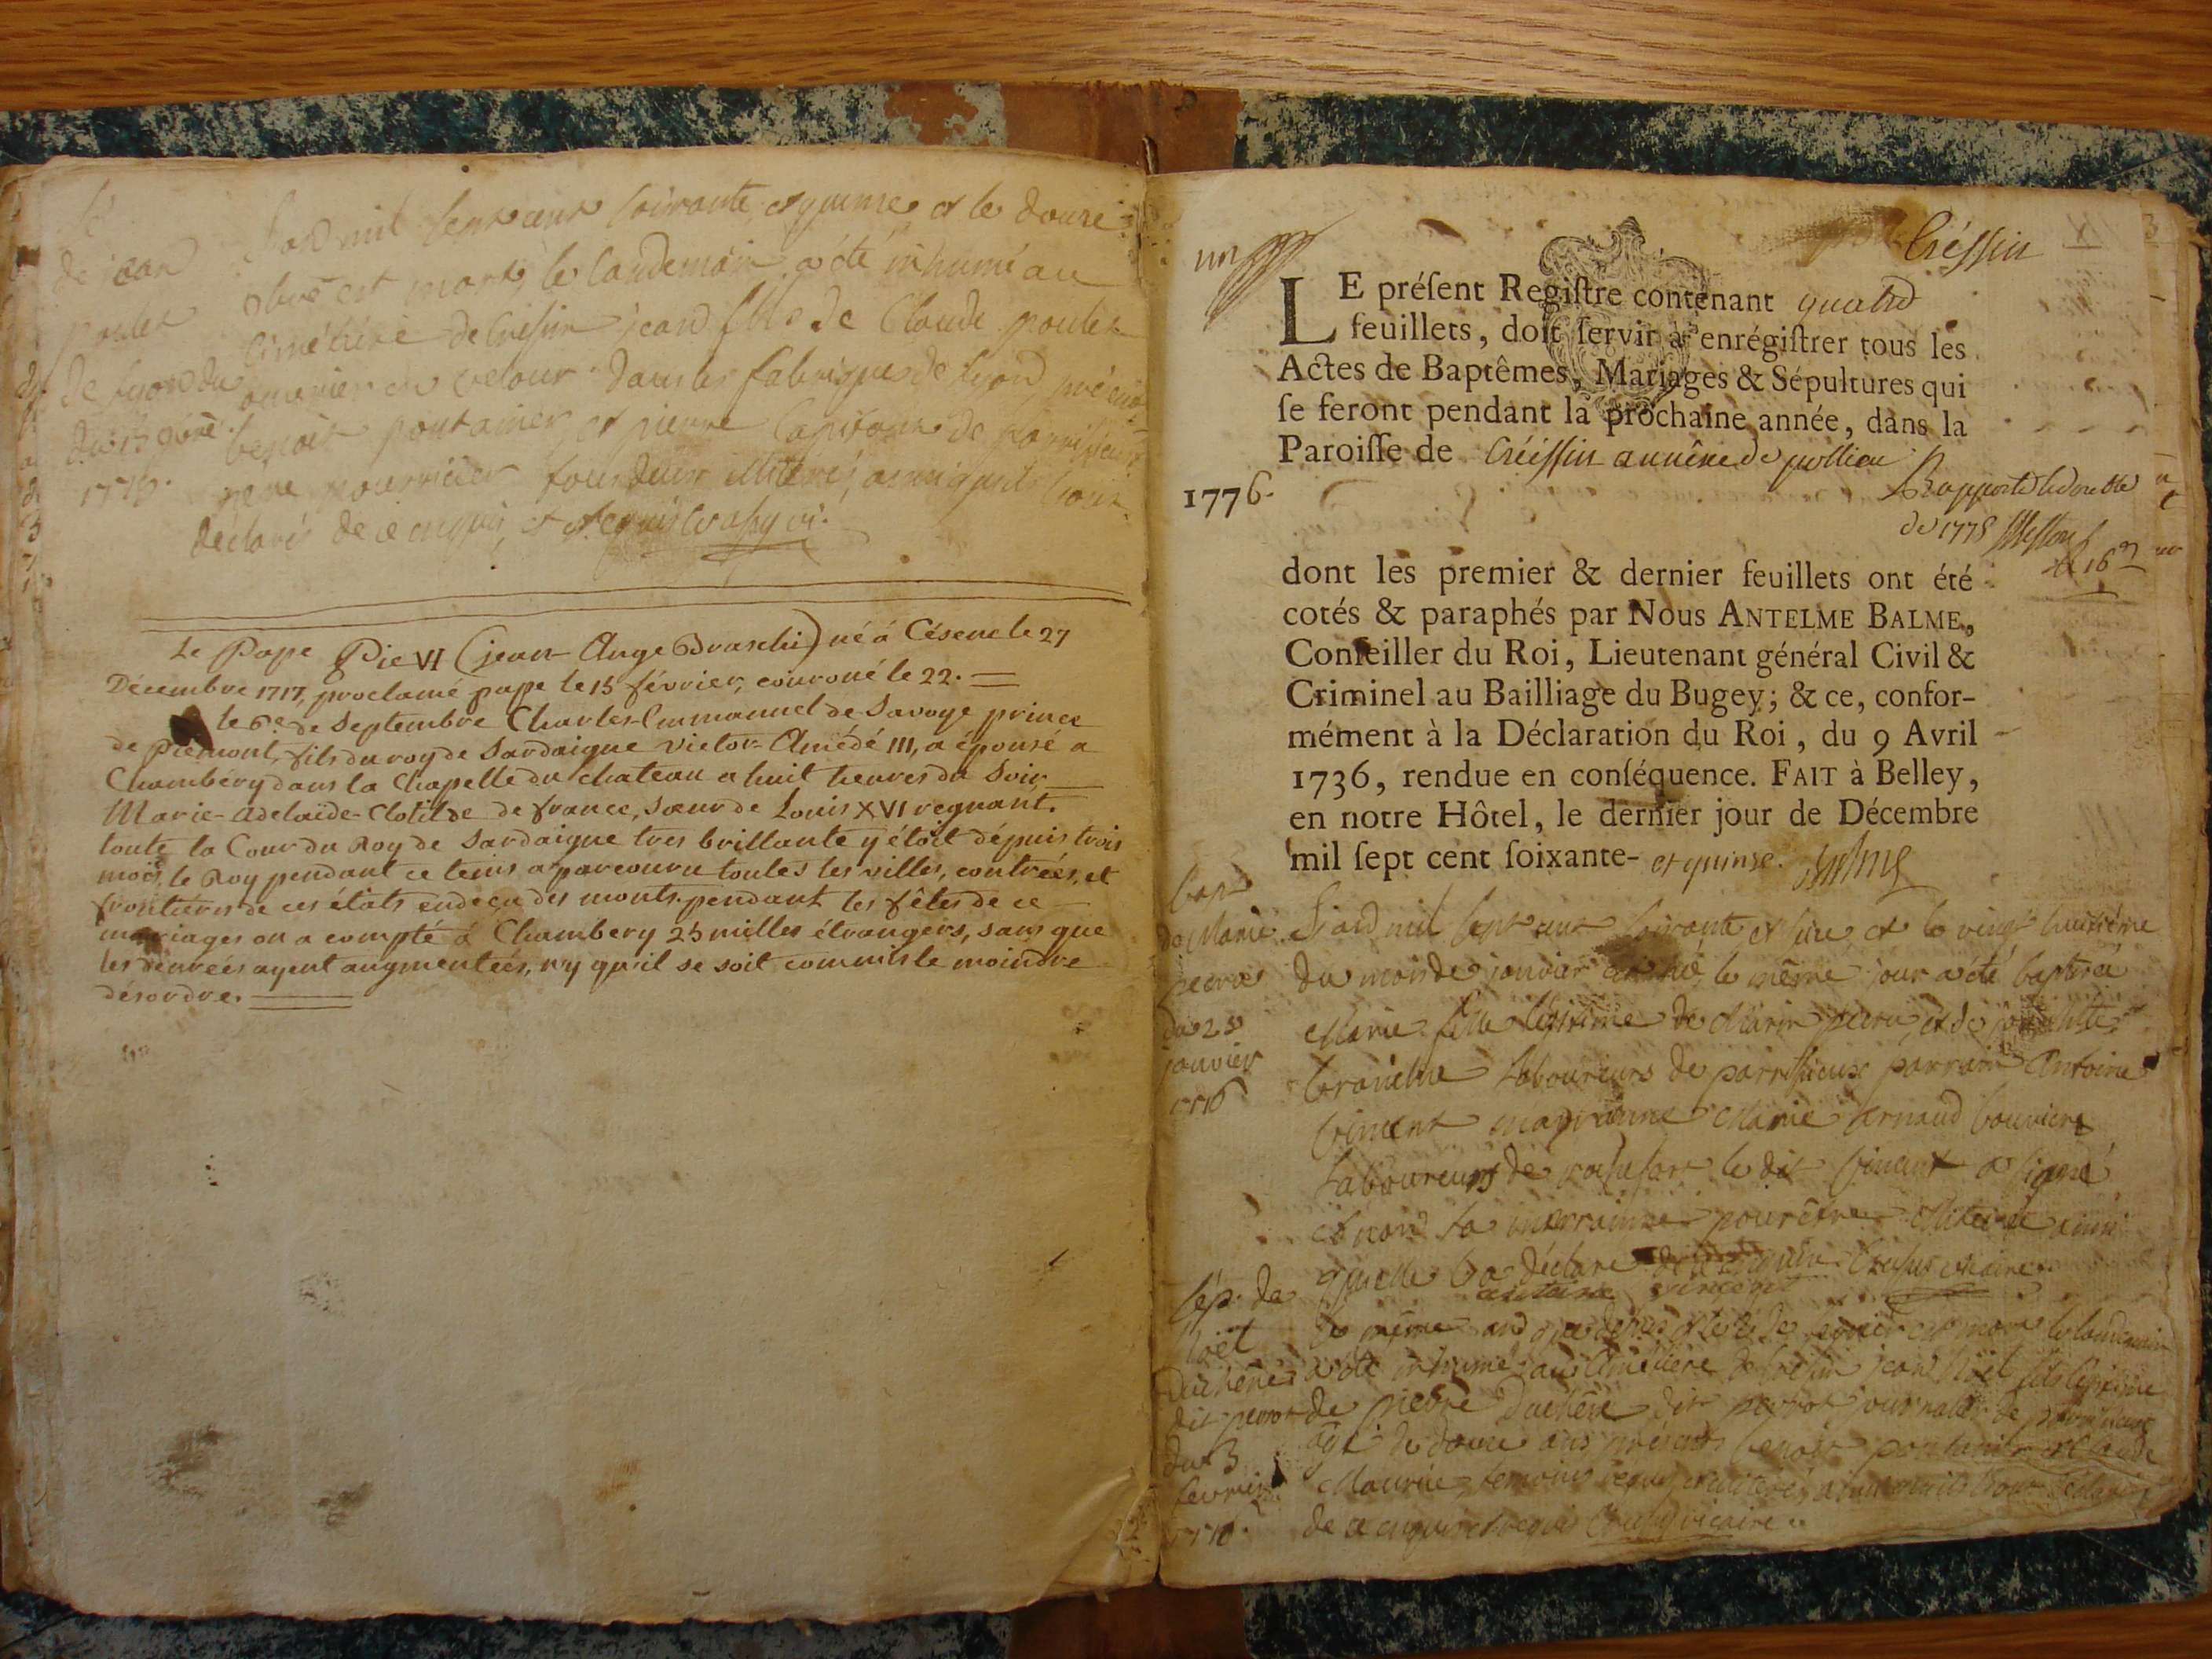 de jean
poulet
de lyon du
du 13 8bre
1775.
L'an mil sept cent soixante et quinze et le douze
8bre est mort, le landemain a été inhumé au
cimétière de Cressin jean fils de Claude poulet
ouvrier en velour dans les fabriques de lyon, présents
benoit pontanier et pierre de parrissieux
père nourricier tous deux illiterés, ainsi qu'ils l'ont
déclarés de ce enquis, et requis
Le Pape Pie VI (jean-Ange Braschi) né à Césene le 27
Décembre 1717, proclamé pape le 15 février, couroné le 22.
le 6e. de Septembre Charles-Emmanuel de Savoye prince
de Piémont, fils du roy de Sardaigne Victor-Amédé III, a épousé a
Chambéry dans la Chapelle du chateau a huit heures du Soir,
Marie-Adelaïde-Clotilde de france, sœur de Louis XVI regnant.
toute la Cour du Roy de Sardaigne tres brillante y étoit dépuis trois
mois, le Roy pendant ce tems a parcouru toutes les villes, contrées, et
frontieres de ces états endeça des monts. pendant les fêtes de ce
mariages on a compté à Chambery 25 milles étrangers, sans que
les denrées ayent augmentées, n'y qu'il se soit commis le moindre
désordre.
un
Créssin
LE préſent Regiſtre contenant quatre
feuillets, doit ſervir à enrégiſtrer tous les
Actes de Baptêmes, Mariages & Sépultures qui
ſe feront pendant la prochaine année, dans la
Paroiſſe de Créissin annêxe de pollieu
1776.
Rapporté le double
de 1775
dont les premier & dernier feuillets ont été
cotés & paraphés par Nous ANTELME BALME,
Conſeiller du Roi, Lieutenant général Civil &
Criminel au Bailliage du Bugey; & ce, confor-
mément à la Déclaration du Roi, du 9 Avril
1736, rendue en conſéquence. FAIT à Belley,
en notre Hôtel, le dernier jour de Décembre
mil ſept cent ſoixante- et quinse. Balme
bap
de Marie
pecru
du 28
janvier
1776
L'an mil sept cent soixante et seize et le vingt huitième
du mois de janvier est né, le même jour a été baptisée
Marie fille légitime de Marin pecru, et de
laboureurs de parrissieux parrain Antoine
vincent marrainne Marie Arnaud bouviere
laboureurs de rochefort le dit vincent a signé
et non la marrainne pour être illiterée ainsi
quelle l'a déclaré de ce enquise vicaire
antoine vincent
sép. de
Noël
duchêne
dit perrot
du 3
fevrier
1776.
le même an que dessus et le 2 de fevrier est mort le landemain
a été inhumé au cimétière de Cressin jean Noël fils légitime
de pierre duchêne dit perrot journalier de parrissieux
âgé de douze ans présents benoit pontanier et Claude
Maurice temoins requis, illiterés, ainsi qu'ils l'ont déclaré
de ce enquis et requis vicaire